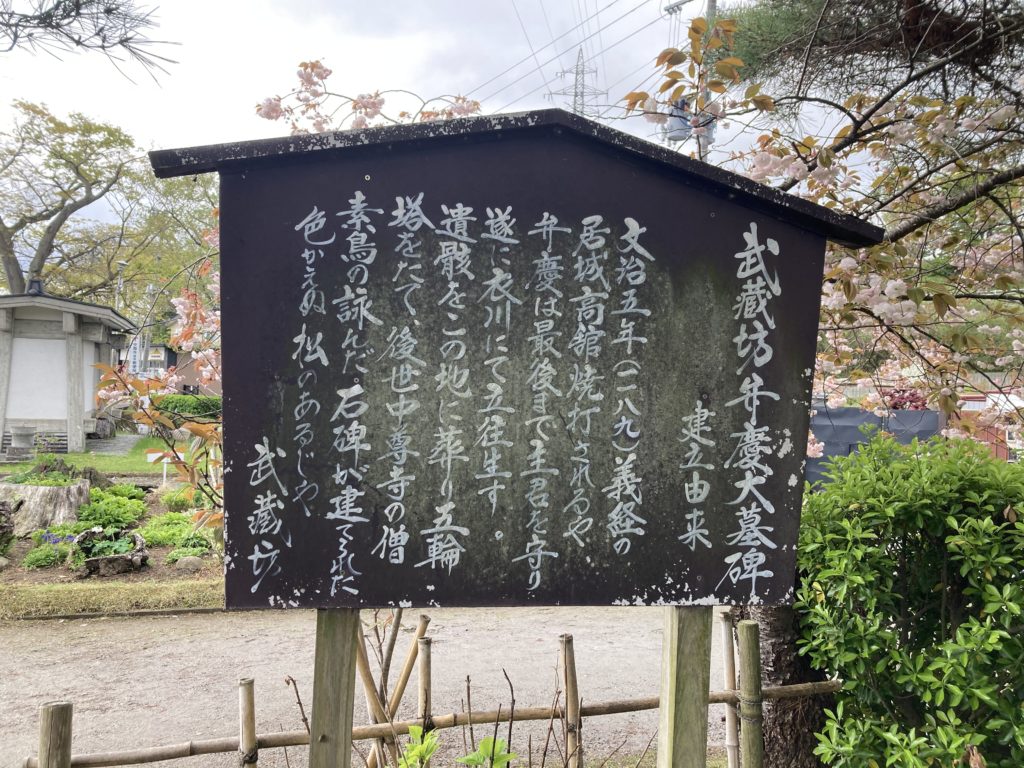 武蔵坊弁慶大墓碑
建立由来
文治五年(一一八九)義経の
居城高舘焼打されるや
弁慶は最後まで主君を守り
遂に衣川にて立往生す。
遺骸をこの地に葬り五輪
塔をたて、後世中尊寺の僧
素鳥の詠んだ石碑が建てられた
色かえぬ 松のあるじや
武蔵坊